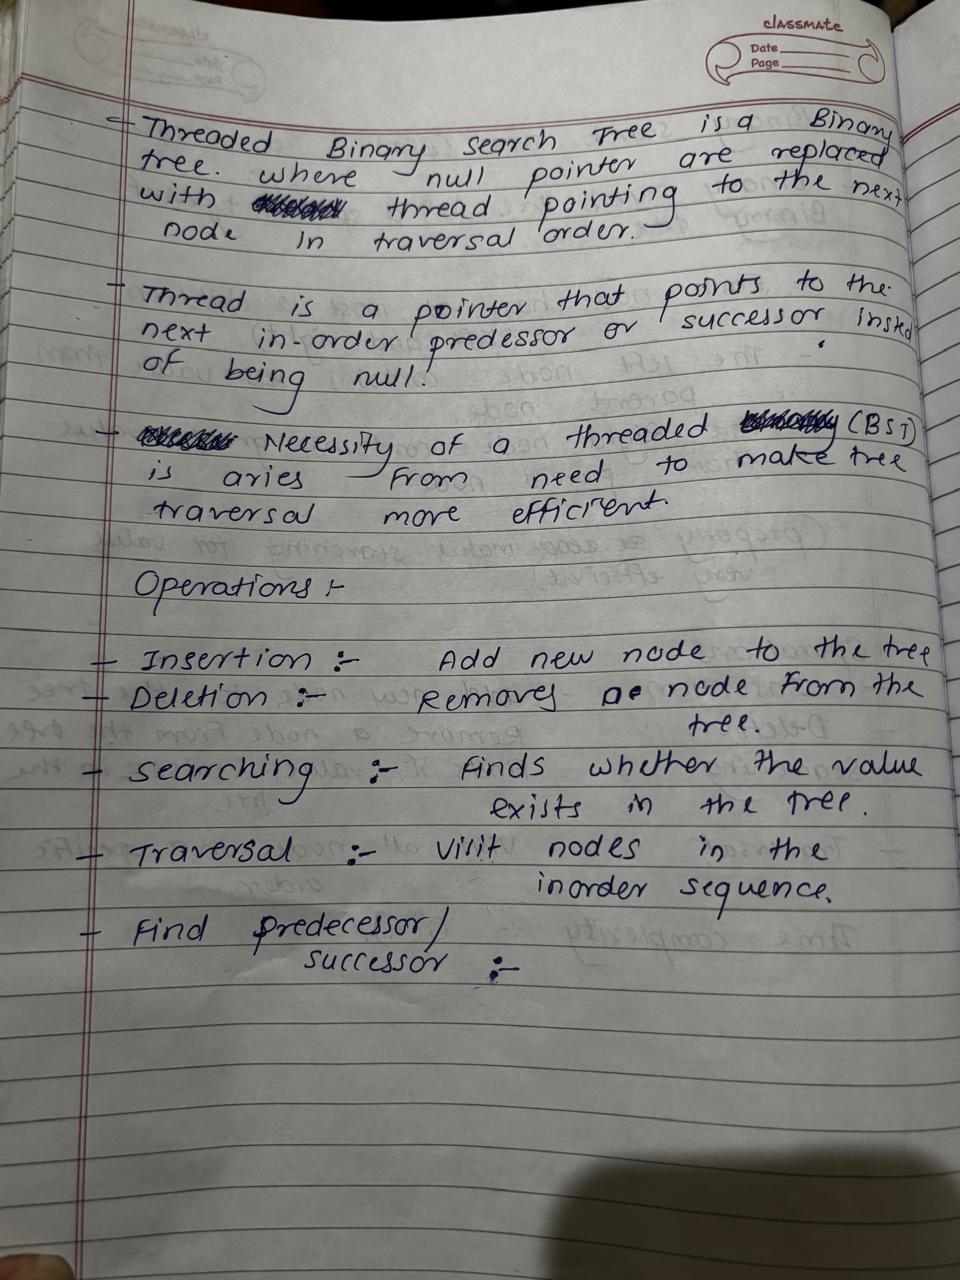 classmate
Date
Page
- Threaded Binary Search Tree is a Binary
tree. where null pointer are replaced
with thread pointing to the next
node in traversal order.
- Thread is a pointer that points to the
next in-order predessor or successor insted
of being null.
- Necessity of a threaded (BST)
is aries from need to make tree
traversal more efficient.
Operations :-
- Insertion :- Add new node to the tree
- Deletion :- Removes node from the
tree.
- Searching :- Finds whether the value
exists in the tree.
- Traversal :- Visit nodes in the
inorder sequence.
- Find predecessor/
successor :-